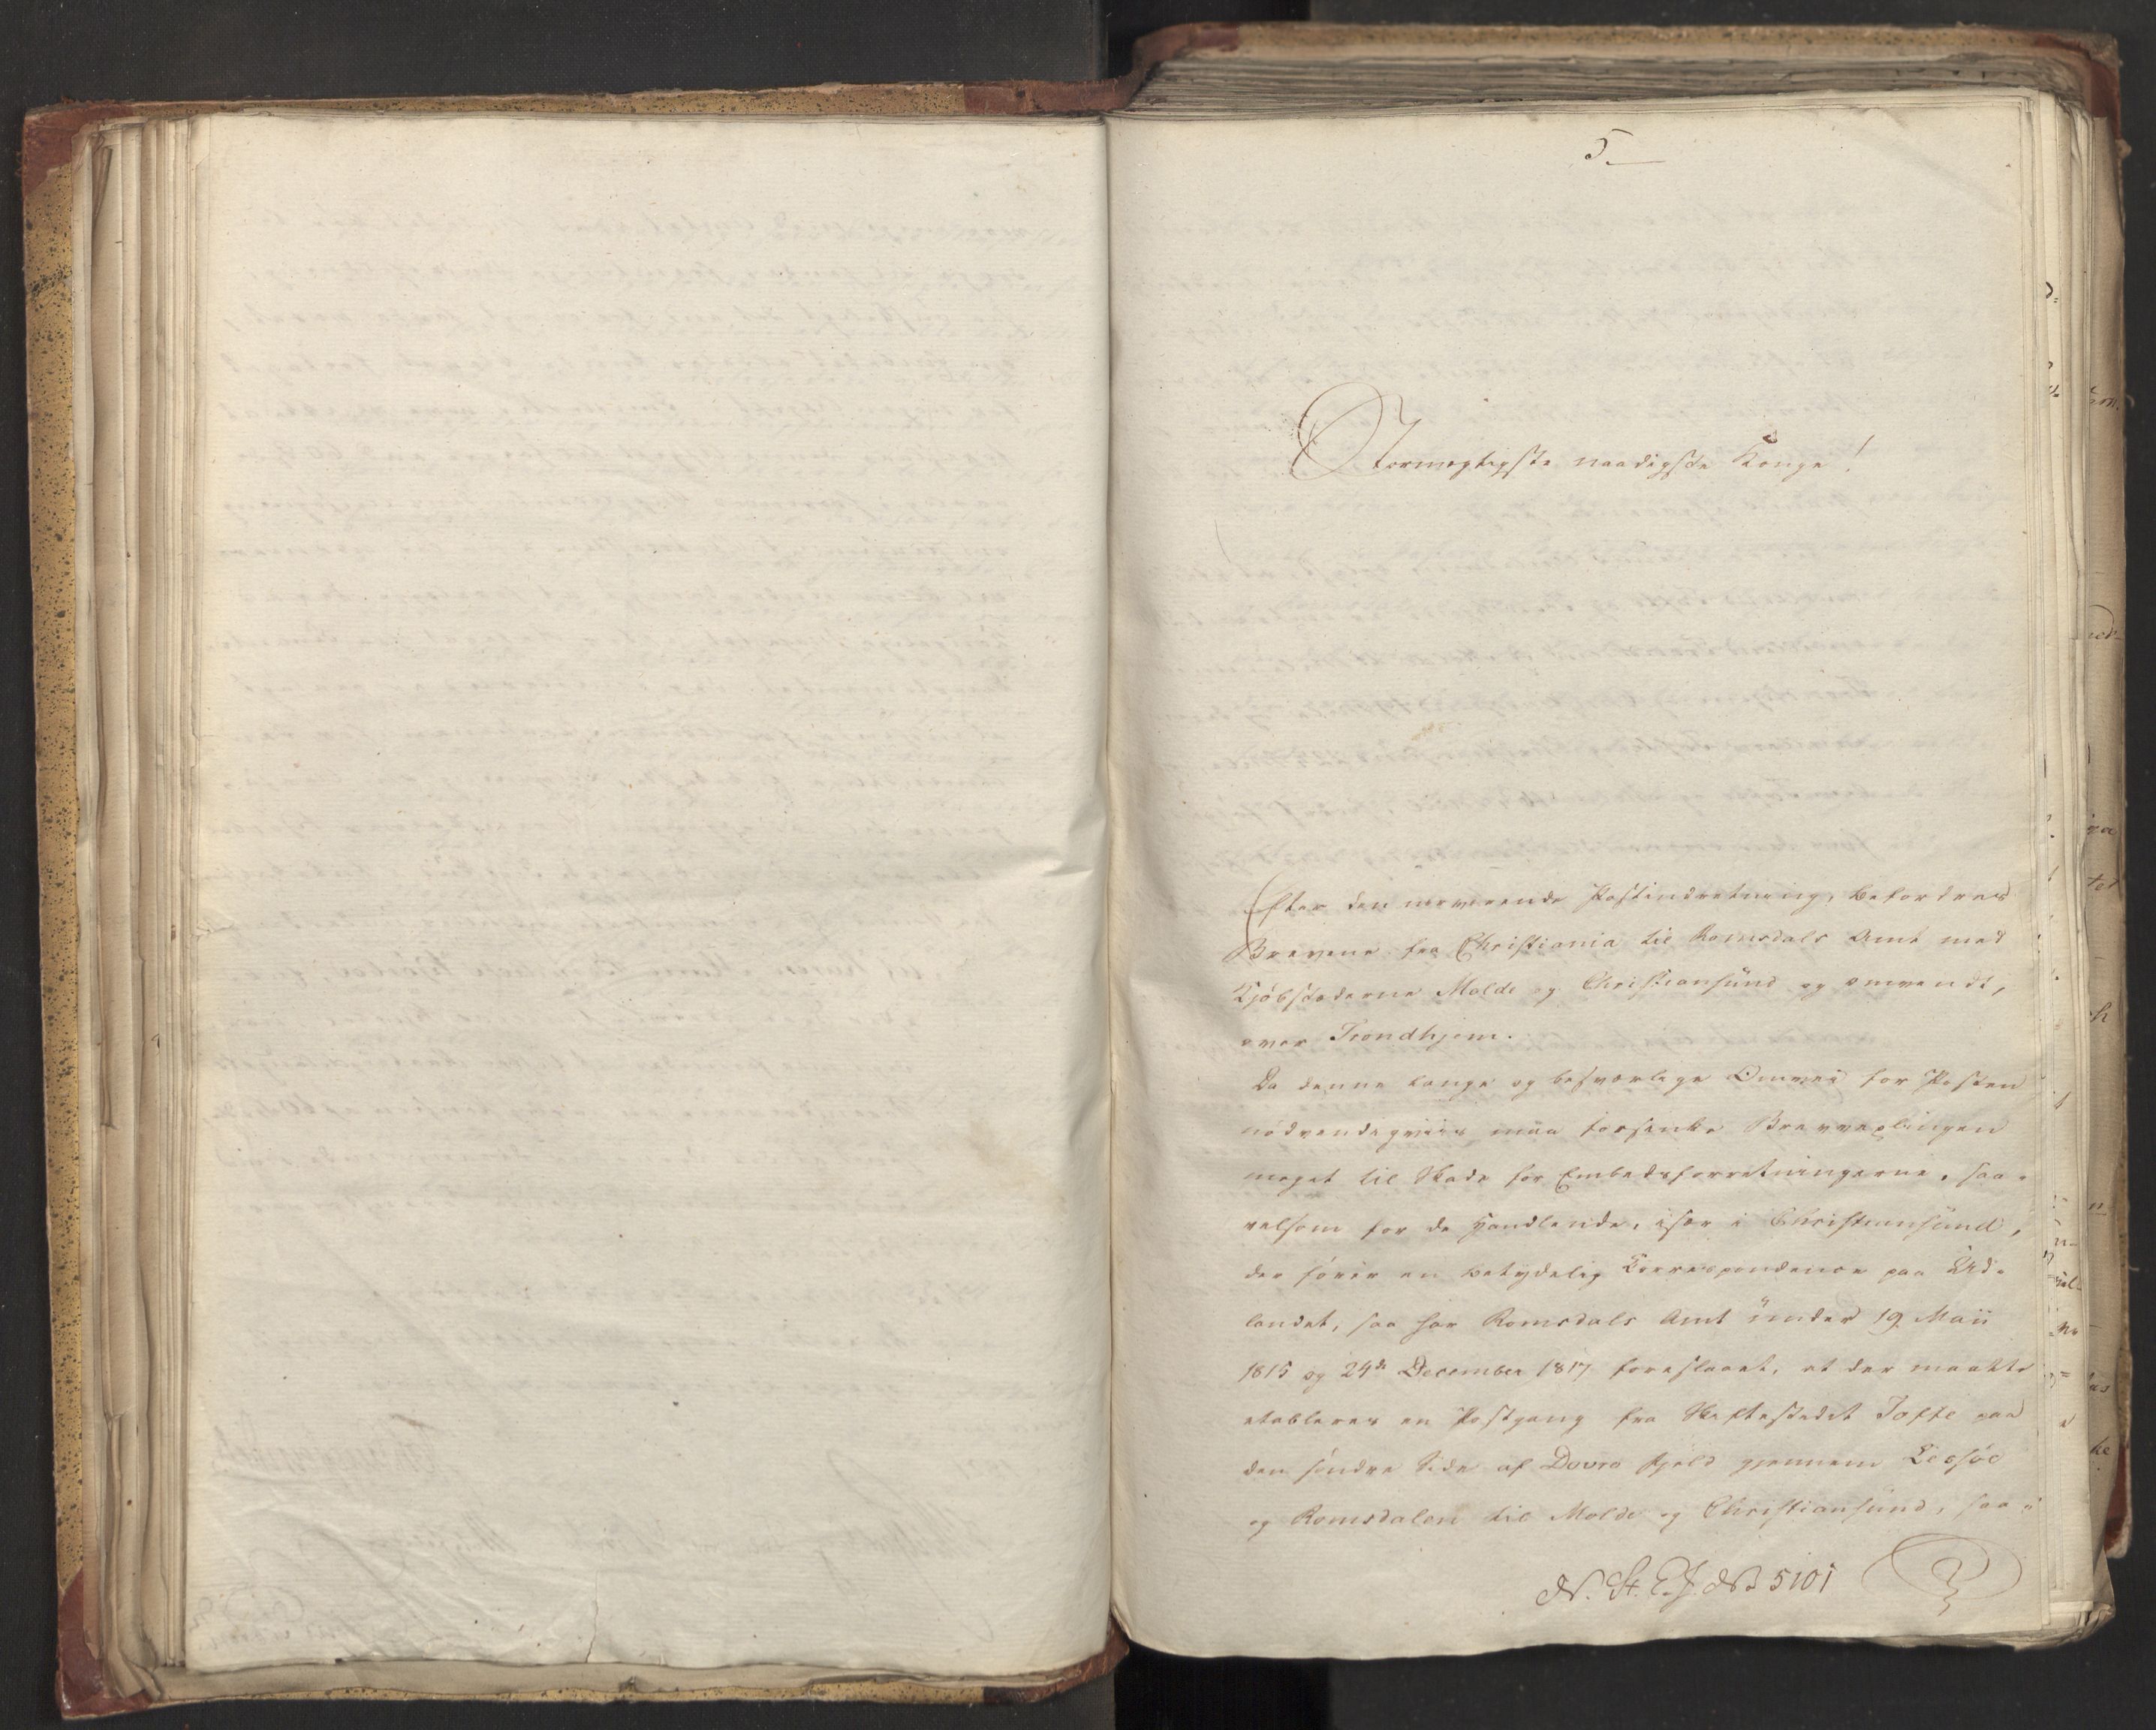 5.
Stormægtigste naadigste Konge!
Efter den nærværende Postindretning, befordres
Brevene fra Christiania til Romsdals Amt med
Kjöbstæderne Molde og Christiansund og omvendt,
over Trondhjem.
Da denne lange og besværlige Omvei for Posten
nödvendigviis maa forsinke Brevvexlingen
meget til Skade for Embedsforretningerne, saa-
velsom for de Handlende, især i Christiansund,
der förer en betydelig Correspondence paa Ud-
landet, saa har Romsdals Amt under 19 Maii
1815 og 24de December 1817 foreslaaet, at der maatte
etableres en Postgang fra Skiftestedet Tofte paa
den söndre Side af Dovre Fjeld gjennem Lessöe
og Romsdalen til Molde og Christiansund, saa-
N. St. E. J. No 5101